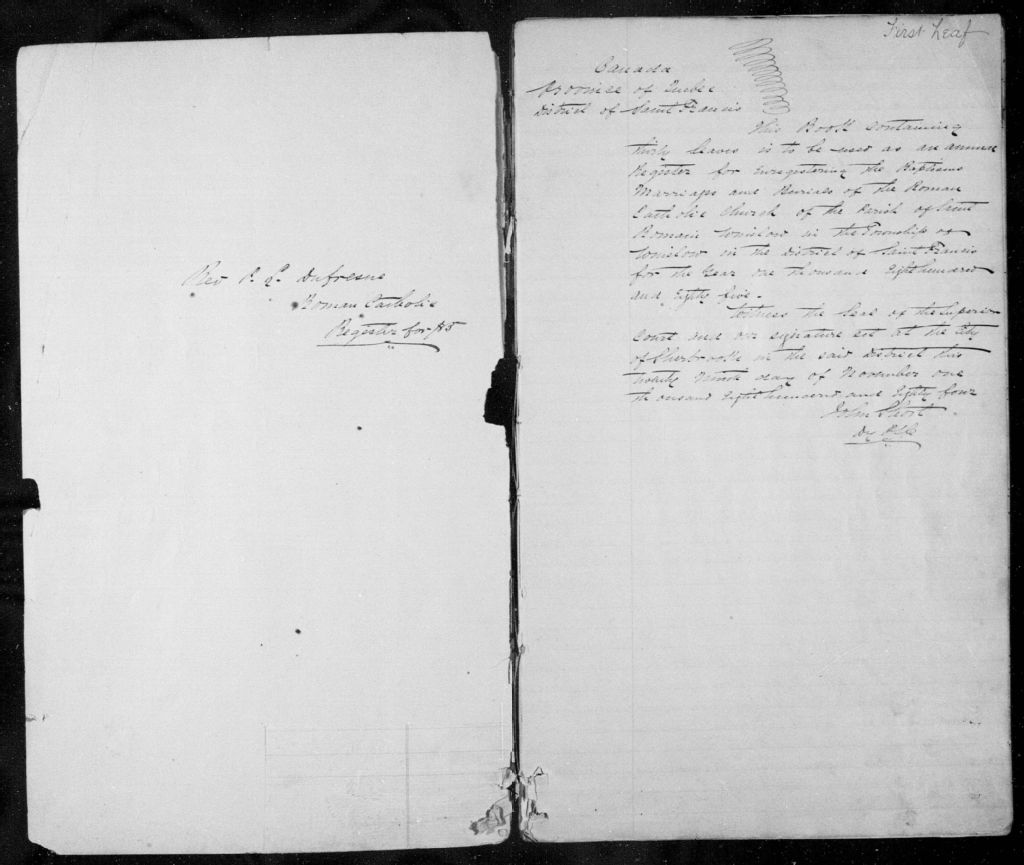 Rev P. L. Dufresne
Roman Catholic
Register for 85
First Leaf
Canada
Province of Quebec
District of Saint Francis
This Book containing
thirty leaves is to be used as an annual
Register for Enregistering the Baptisms
Marriages and Burials of the Roman
Catholic Church of the Parish of Saint
Romain Winslow in the Township of
Winslow in the District of Saint Francis
for the Year one thousand Eight hundred
and Eighty five.
Witness the Seal of the Superior
Court and our signature set at the City
of Sherbrooke in the said District this
twenty Ninth day of November one
thousand Eight hundred and Eighty four
John Short
Dy P.S.C.